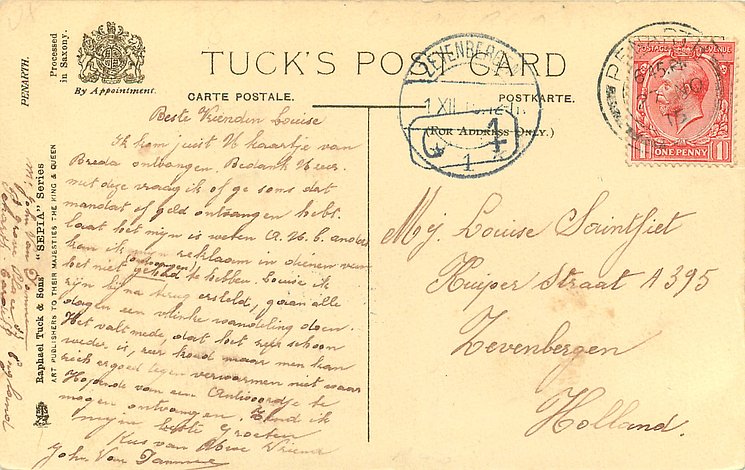 PENARTH.
Processed
in Saxony.
By Appointment.
TUCK'S POST CARD
CARTE POSTALE.
POSTKARTE.
(FOR ADDRESS ONLY.)
ZEVENBERGEN
1 XII
1
PENARTH
6.45 PM
NO
15
POSTAGE REVENUE
1 ONE PENNY 1
Raphael Tuck & Sons' "SEPIA" Series
ART PUBLISHERS TO THEIR MAJESTIES THE KING & QUEEN
Beste Vriendin Louise
Ik kom juist U kaartje van
Breda ontvangen. Bedank U zeer.
met deze vraag ik of ge soms dat
mandaat of geld ontvangen hebt.
laat het mijn is weten A.U.B. anders
kan ik mijn reklaam in dienen van
het niet (ontvangen) te hebben. Louise ik
zijn bijna terug ersteld, gaan alle
dagen een vlinke wandeling doen.
Het valt mede, dat het zeer schoon
weder is, zeer koud maar men kan
zich ergoed tegen verwarmen niet waar
Hopende van een Antwoordje te
mogen ontvangen, Zend ik
mijn beste Groeten
Kus van Uwe Vriend
John Van Damme
Mej. Louise Saintfiet
Kuiper Straat A 395
Zevenbergen
Holland.
John Van Damme
England